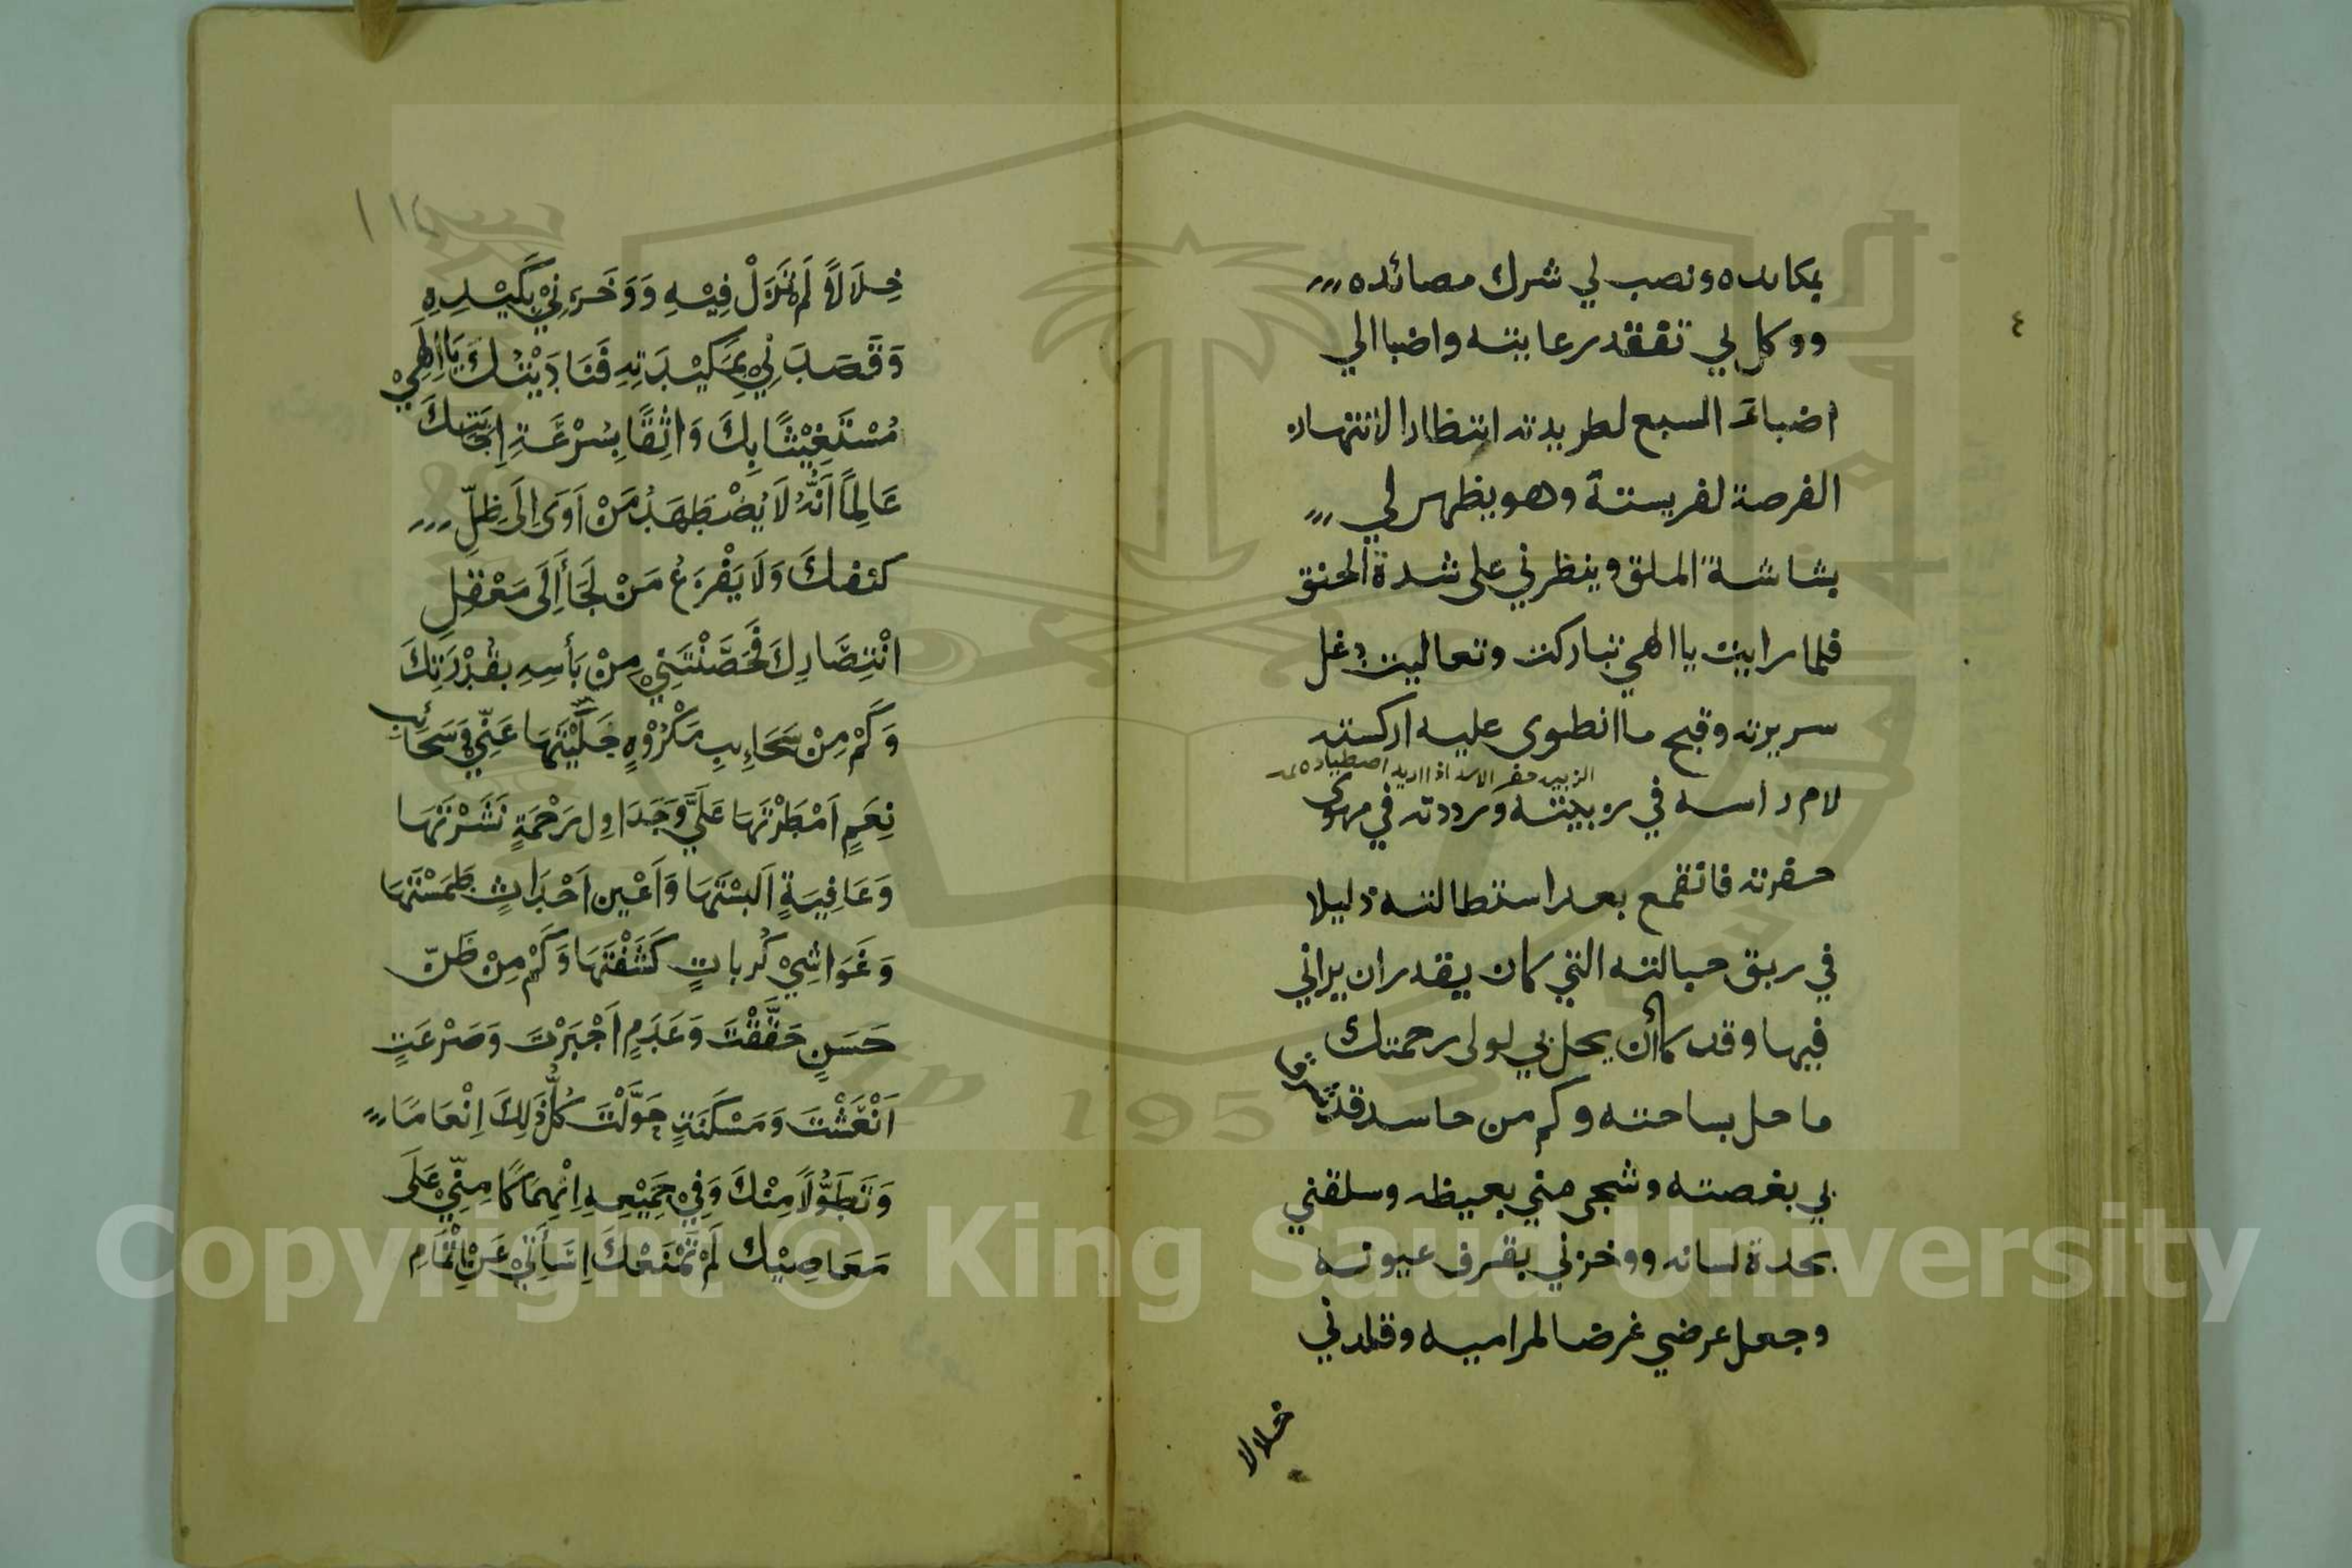 ٤
بمكايده ونصب لي شرك مصائده
ووكل بي تفقد رعايته واضبا الي
اضباءَ السبع لطريدته انتظارا لانتهاز
الفرصة لفريسته وهو يظهر لي
بشاشة الملق وينظرني على شدة الحنق
فلما رايت يا الهي تباركت وتعاليت دغل
سريرته وقبح ما انطوى عليه اركسته
الزبية حفر الاسد اذا اريد اصطياده
لام راسه في زبيته ورددته في مهوى
حفرته فانقمع بعد استطالته ذليلا
في ربق حبالته التي كان يقدر ان يراني
فيها وقد كاأن يحل بي لولى رحمتك
ما حل بساحته وكم من حاسد قد شرق
بي بغصته وشجى مني بغيظه وسلقني
بحدة لسانه ووخزني بقرف عيوبه
وجعل عرضي غرضا لمراميه وقلدني
خلالا
خِلَالًا لَمْ تَزَلْ فِيْهِ وَوَخَزَنِيْ بِكَيْدِهِ
وَقَصَدَنِيْ بِمَكِيْدَتِهِ فَنَادَيْتُكَ يَا اِلٰهِيْ
مُسْتَغِيْثًا بِكَ وَاثِقًا بِسُرْعَةِ اِجَابَتِكَ
عَالِمًا اَنَّهُ لَا يُضْطَهَدُ مَنْ اَوَى اِلَى ظِلِّ
كنفك وَلَا يَفْزَعُ مَنْ لَجَأَ اِلَى مَعْقِلِ
انْتِصَارِكَ فَحَصَّنْتَنِيْ مِنْ بَأسِهِ بِقُدْرَتِكَ
وَكَمْ مِنْ سَحَايِبِ مَكْرُوْهٍ جَلَّيْتَهَا عَنِّيْ وَسَحَائِبِ
نِعَمٍ اَمْطَرْتَهَا عَلَيَّ وَجَدَاوِلِ رَحْمَةٍ نَشَرْتَهَا
وَعَافِيَةٍ اَلبَسْتَهَا وَاَعْيِن اَحْدَاثٍ طَمَسْتَهَا
وَغَوَاشِيْ كُرباتٍ كَشَفْتَهَا وَكَمْ مِنْ ظَنّ
حَسَنٍ حَقَّقْتَ وَعَدَمٍ اَجْبَرْتَ وَصَرْعَتٍ
اَنْعَشْتَ وَمَسْكَنَةٍ حَوَّلْتَ كُلُّ ذَلِكَ اِنْعَامًا
وَتَطَوُّلًا مِنْكَ وَفِيْ جَمِيْعِهِ اِنْهِمَاكًا مِنِّيْ عَلَى
مَعَاصِيْك لَمْ تَمْنَعْكَ اِسَاَتِيْ عَنْ اِتْمَامِ
Copyright © King Saud University